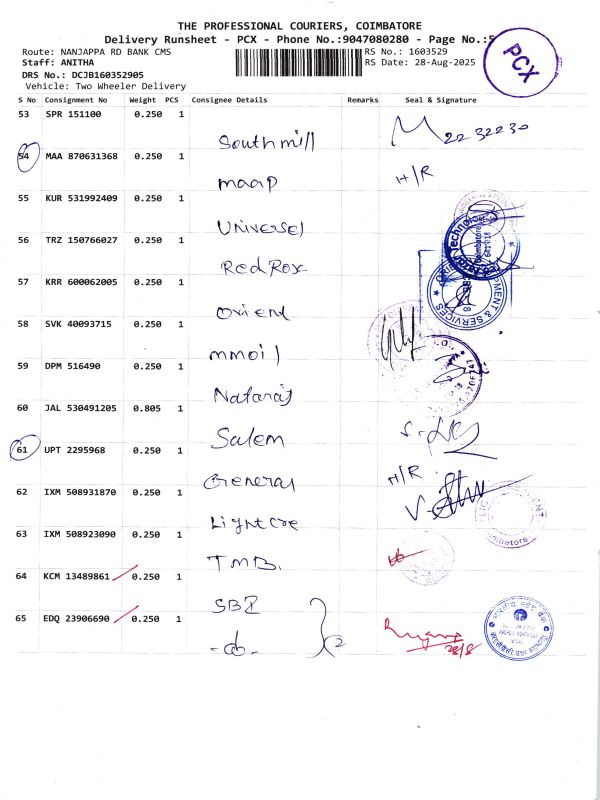 THE PROFESSIONAL COURIERS, COIMBATORE
Delivery Runsheet - PCX - Phone No.:9047080280 - Page No.:5
Route: NANJAPPA RD BANK CMS RS No.: 1603529
Staff: ANITHA RS Date: 28-Aug-2025
DRS No.: DCJB160352905
Vehicle: Two Wheeler Delivery
PCX
S No Consignment No Weight PCS Consignee Details Remarks Seal & Signature
53 SPR 151100 0.250 1
Southmill 2232230
54 MAA 870631368 0.250 1
maap H/R
55 KUR 531992409 0.250 1
Universel
56 TRZ 150766027 0.250 1
Red Rox
57 KRR 600062005 0.250 1
Orient
58 SVK 40093715 0.250 1
mmoil
59 DPM 516490 0.250 1
Nataraj
60 JAL 530491205 0.805 1
Salem
61 UPT 2295968 0.250 1
General H/R
62 IXM 508931870 0.250 1
Lightcre
63 IXM 508923090 0.250 1
TMB.
64 KCM 13489861 0.250 1
SBI
65 EDQ 23906690 0.250 1
-do-
28/8